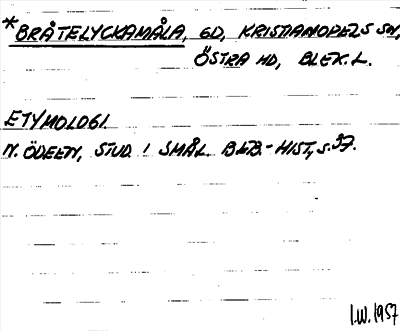 *BRÅTELYCKAMÅLA, GD, KRISTIANOPELS SN,
ÖSTRA HD, BLEK. L.
ETYMOLOGI.
N. ÖDEEN, STUD. I SMÅL. BEB.-HIST, S. 37.
I.W. 1957